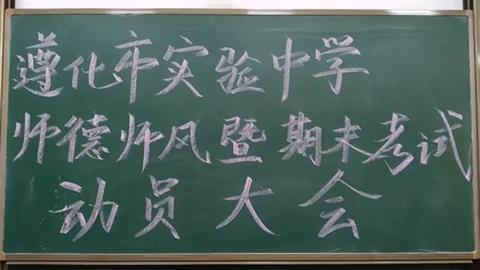 遵化市实验中学
师德师风暨期末考试
动员大会